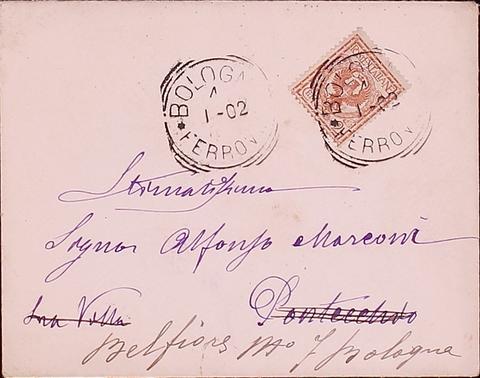 BOLOGNA
1-02
*FERROV
BOLOG
1-02
*FERROV
Stimatissimo
Signor Alfonso Marconi
Sua Villa Pontecchio
Belfiore No 7 Bologna